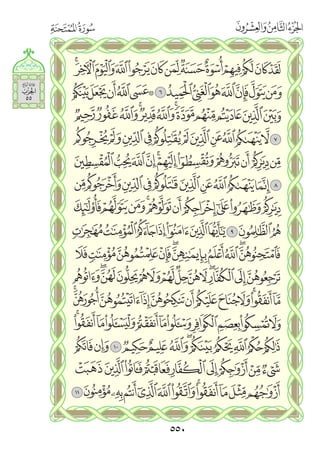 الجُزْءُ الثَّامِنُ وَالعِشْرُونَ
سُورَةُ المُمْتَحَنَةِ
لَقَدْ كَانَ لَكُمْ فِيهِمْ أُسْوَةٌ حَسَنَةٌ لِّمَن كَانَ يَرْجُوا۟ ٱللَّهَ وَٱلْيَوْمَ ٱلْـَٔاخِرَ ۚ
وَمَن يَتَوَلَّ فَإِنَّ ٱللَّهَ هُوَ ٱلْغَنِىُّ ٱلْحَمِيدُ ٦ ۞ عَسَى ٱللَّهُ أَن يَجْعَلَ بَيْنَكُمْ
وَبَيْنَ ٱلَّذِينَ عَادَيْتُم مِّنْهُم مَّوَدَّةً ۚ وَٱللَّهُ قَدِيرٌ ۚ وَٱللَّهُ غَفُورٌ رَّحِيمٌ
٧ لَّا يَنْهَىٰكُمُ ٱللَّهُ عَنِ ٱلَّذِينَ لَمْ يُقَٰتِلُوكُمْ فِى ٱلدِّينِ وَلَمْ يُخْرِجُوكُم
مِّن دِيَٰرِكُمْ أَن تَبَرُّوهُمْ وَتُقْسِطُوٓا۟ إِلَيْهِمْ ۚ إِنَّ ٱللَّهَ يُحِبُّ ٱلْمُقْسِطِينَ
٨ إِنَّمَا يَنْهَىٰكُمُ ٱللَّهُ عَنِ ٱلَّذِينَ قَٰتَلُوكُمْ فِى ٱلدِّينِ وَأَخْرَجُوكُم مِّن
دِيَٰرِكُمْ وَظَٰهَرُوا۟ عَلَىٰٓ إِخْرَاجِكُمْ أَن تَوَلَّوْهُمْ ۚ وَمَن يَتَوَلَّهُمْ فَأُو۟لَٰٓئِكَ
هُمُ ٱلظَّٰلِمُونَ ٩ يَٰٓأَيُّهَا ٱلَّذِينَ ءَامَنُوٓا۟ إِذَا جَآءَكُمُ ٱلْمُؤْمِنَٰتُ مُهَٰجِرَٰتٍ
فَٱمْتَحِنُوهُنَّ ۖ ٱللَّهُ أَعْلَمُ بِإِيمَٰنِهِنَّ ۖ فَإِنْ عَلِمْتُمُوهُنَّ مُؤْمِنَٰتٍ فَلَا
تَرْجِعُوهُنَّ إِلَى ٱلْكُفَّارِ ۖ لَا هُنَّ حِلٌّ لَّهُمْ وَلَا هُمْ يَحِلُّونَ لَهُنَّ ۖ وَءَاتُوهُم
مَّآ أَنفَقُوا۟ ۚ وَلَا جُنَاحَ عَلَيْكُمْ أَن تَنكِحُوهُنَّ إِذَآ ءَاتَيْتُمُوهُنَّ أُجُورَهُنَّ ۚ
وَلَا تُمْسِكُوا۟ بِعِصَمِ ٱلْكَوَافِرِ وَسْـَٔلُوا۟ مَآ أَنفَقْتُمْ وَلْيَسْـَٔلُوا۟ مَآ أَنفَقُوا۟ ۚ
ذَٰلِكُمْ حُكْمُ ٱللَّهِ ۖ يَحْكُمُ بَيْنَكُمْ ۚ وَٱللَّهُ عَلِيمٌ حَكِيمٌ ١٠ وَإِن فَاتَكُمْ
شَىْءٌ مِّنْ أَزْوَٰجِكُمْ إِلَى ٱلْكُفَّارِ فَعَاقَبْتُمْ فَـَٔاتُوا۟ ٱلَّذِينَ ذَهَبَتْ
أَزْوَٰجُهُم مِّثْلَ مَآ أَنفَقُوا۟ ۚ وَٱتَّقُوا۟ ٱللَّهَ ٱلَّذِىٓ أَنتُم بِهِۦ مُؤْمِنُونَ ١١
٥٥٠